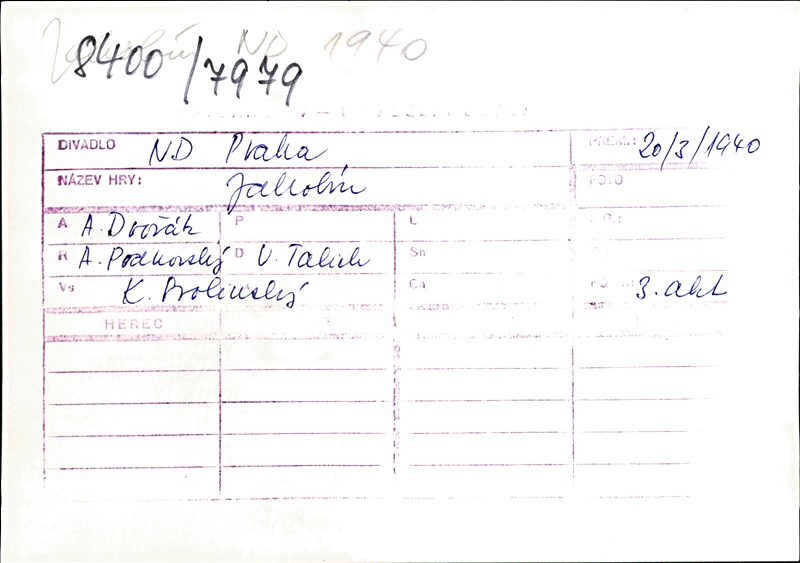 Jakobín ND 1940
8400/7979
DIVADLO ND Praha PREM.: 20/3/1940
NÁZEV HRY: Jakobín FOTO
A A. Dvořák P L
R A. Podhorský D V. Talich Sh
Vs K. Prolinský Ch 3. akt
HEREC